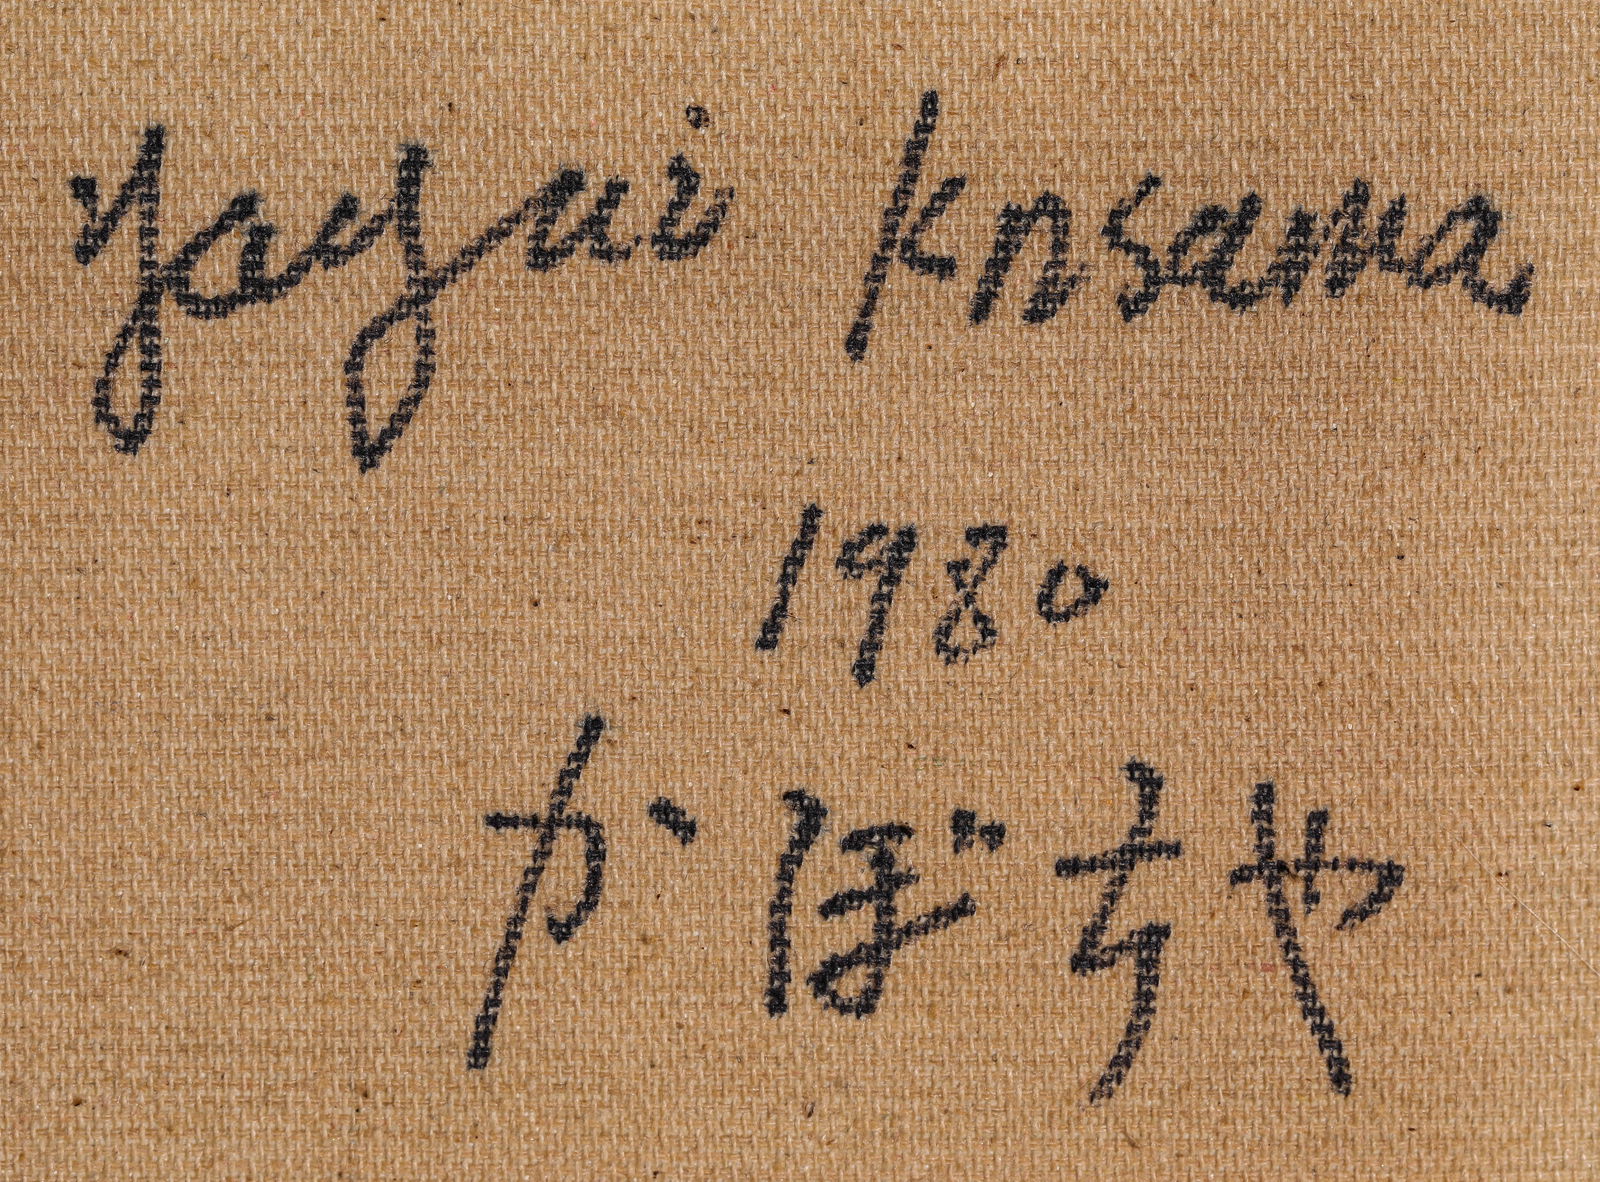 Yayoi Kusama
1980
かぼちゃ